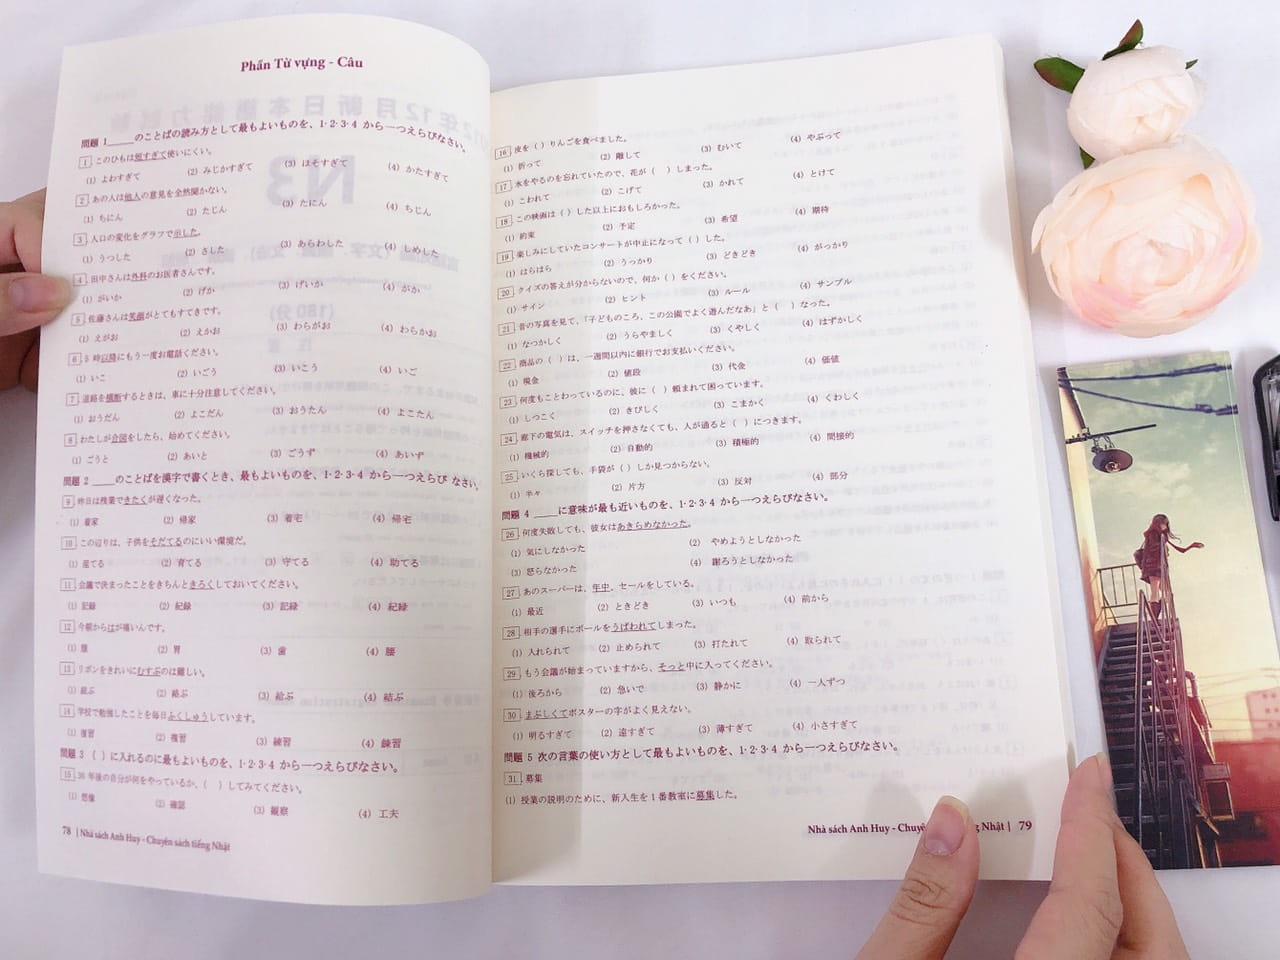 Phần Từ vựng - Câu
問題 1_____のことばの読み方として最もよいものを、1·2·3·4 から一つえらびなさい。
1 このひもは短すぎて使いにくい。
(1) よわすぎて (2) みじかすぎて (3) ほそすぎて (4) かたすぎて
2 あの人は他人の意見を全然聞かない。
(1) ちにん (2) たじん (3) たにん (4) ちじん
3 人口の変化をグラフで示した。
(1) うつした (2) さした (3) あらわした (4) しめした
4 田中さんは外科のお医者さんです。
(1) がいか (2) げか (3) げいか (4) がか
5 佐藤さんは笑顔がとてもすてきです。
(1) えがお (2) えかお (3) わらがお (4) わらかお
6 5 時以降にもう一度お電話ください。
(1) いこ (2) いごう (3) いこう (4) いご
7 道路を横断するときは、車に十分注意してください。
(1) おうだん (2) よこだん (3) おうたん (4) よこたん
8 わたしが合図をしたら、始めてください。
(1) ごうと (2) あいと (3) ごうず (4) あいず
問題 2 _____のことばを漢字で書くとき、最もよいものを、1·2·3·4 から一つえらび なさい。
9 昨日は残業できたくが遅くなった。
(1) 着家 (2) 帰家 (3) 着宅 (4) 帰宅
10 この辺りは、子供をそだてるのにいい環境だ。
(1) 産てる (2) 育てる (3) 守てる (4) 助てる
11 会議で決まったことをきちんときろくしておいてください。
(1) 記録 (2) 紀録 (3) 記緑 (4) 紀緑
12 今朝からはが痛いんです。
(2) 胃 (3) 歯 (4) 腰
13 リボンをきれいにむすぶのは難しい。
(3) 給ぶ (4) 結ぶ
14 学校で勉強したことを毎日ふくしゅうしています。
(1) 復習 (2) 複習 (3) 練習 (4) 錬習
問題 3 ( ) に入れるのに最もよいものを、1·2·3·4 から一つえらびなさい。
15 30 年後の自分が何をやっているか、( ) してみてください。
(1) 想像 (2) 確認 (3) 観察 (4) 工夫
78 | Nhà sách Anh Huy - Chuyên sách tiếng Nhật
16 皮を ( ) りんごを食べました。
(1) 折って (2) 離して (3) むいて (4) やぶって
17 水をやるのを忘れていたので、花が ( ) しまった。
(1) こわれて (2) こげて (3) かれて (4) とけて
18 この映画は ( ) した以上におもしろかった。
(1) 約束 (2) 予定 (3) 希望 (4) 期待
19 楽しみにしていたコンサートが中止になって ( ) した。
(1) はらはら (2) うっかり (3) どきどき (4) がっかり
20 クイズの答えが分からないので、何か ( ) をください。
(1) サイン (2) ヒント (3) ルール (4) サンプル
21 昔の写真を見て、「子どものころ、この公園でよく遊んだなあ」と ( ) なった。
(1) なつかしく (2) うらやましく (3) くやしく (4) はずかしく
22 商品の ( ) は、一週間以内に銀行でお支払いください。
(1) 現金 (2) 値段 (3) 代金 (4) 価値
23 何度もことわっているのに、彼に ( ) 頼まれて困っています。
(1) しつこく (2) きびしく (3) こまかく (4) くわしく
24 廊下の電気は、スイッチを押さなくても、人が通ると ( ) につきます。
(1) 機械的 (2) 自動的 (3) 積極的 (4) 間接的
25 いくら探しても、手袋が ( ) しか見つからない。
(1) 半々 (2) 片方 (3) 反対 (4) 部分
問題 4 _____に意味が最も近いものを、1·2·3·4 から一つえらびなさい。
26 何度失敗しても、彼女はあきらめなかった。
(1) 気にしなかった (2) やめようとしなかった
(3) 怒らなかった (4) 謝ろうとしなかった
27 あのスーパーは、年中、セールをしている。
(1) 最近 (2) ときどき (3) いつも (4) 前から
28 相手の選手にボールをうばわれてしまった。
(1) 入れられて (2) 止められて (3) 打たれて (4) 取られて
29 もう会議が始まっていますから、そっと中に入ってください。
(1) 後ろから (2) 急いで (3) 静かに (4) 一人ずつ
30 まぶしくてポスターの字がよく見えない。
(1) 明るすぎて (2) 遠すぎて (3) 薄すぎて (4) 小さすぎて
問題 5 次の言葉の使い方として最もよいものを、1·2·3·4 から一つえらびなさい。
31 募集
(1) 授業の説明のために、新入生を 1 番教室に募集した。
Nhà sách Anh Huy - Chuy ng Nhật | 79